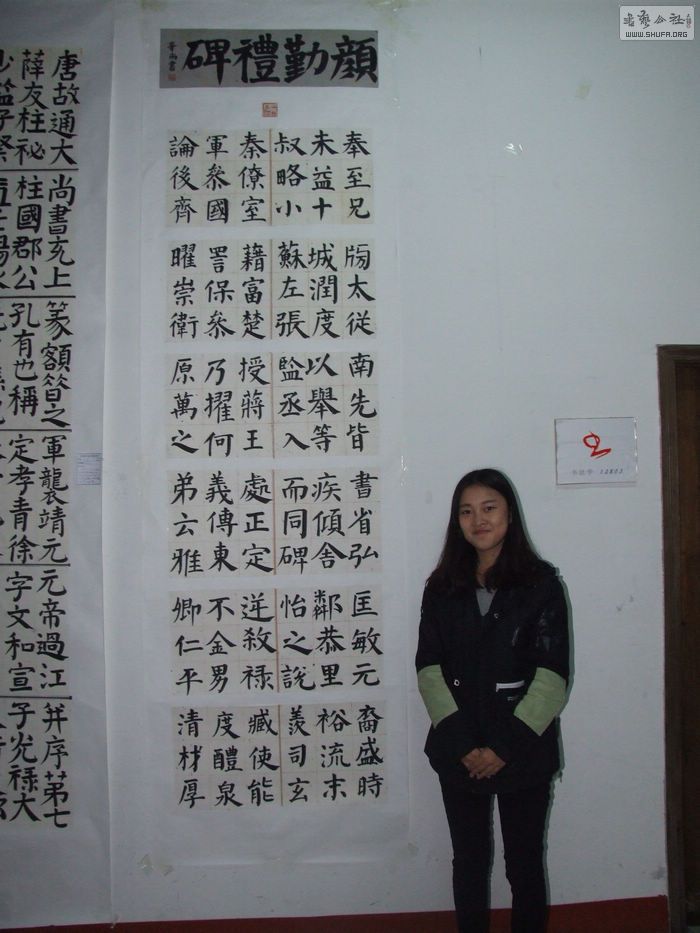 書藝公社
WWW.SHUFA.ORG
顔勤禮碑
奉至兄
未益十
叔略小
秦僚室
軍叅國
論後齊
牓太從
城潤度
蘇左張
藉富楚
詈保叅
曜崇衛
南先皆
以舉等
監丞入
授蔣王
乃擢何
原萬之
書省弘
疾傾舍
而同碑
處正定
義傳東
弟云雅
匡敏元
鄰恭里
怡之說
迸殺禄
不金男
卿仁平
裔盛時
裕流末
羨司玄
臧使能
度醴泉
清材厚
唐故通大
薛友柱祕
少監子祭
尚書充上
柱國郡公
篆額
之
孔有也稱
軍襲靖元
定孝青徐
元帝過江
字文和宣
并序第七
子光禄大
书法学 12803